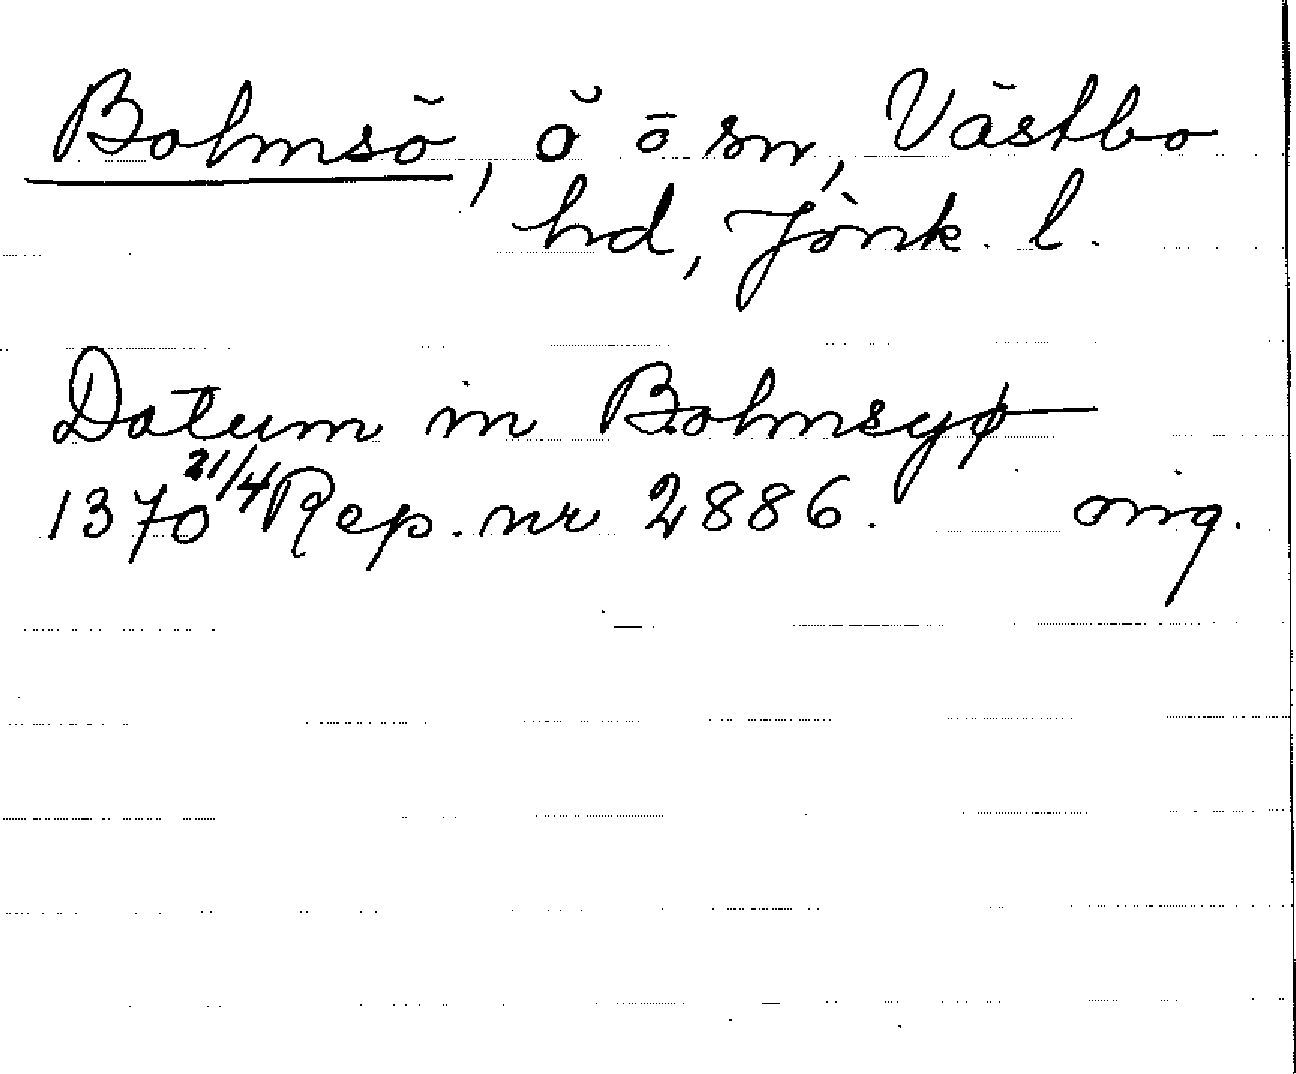 Bolmsö, ö o sn, Västbo
hd, Jönk. l.
Datum in Bolmsyø
1370 21/4 Rep. nr 2886. orig.